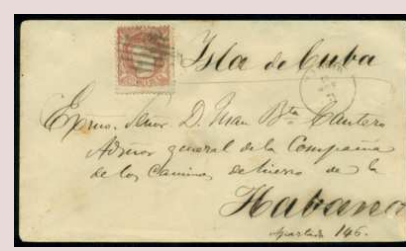 Isla de Cuba
Exmo. Señor D. Juan Bta. Cantero
general de la Compañia
de los Caminos de hierro de la
Habana
Apartado 146.